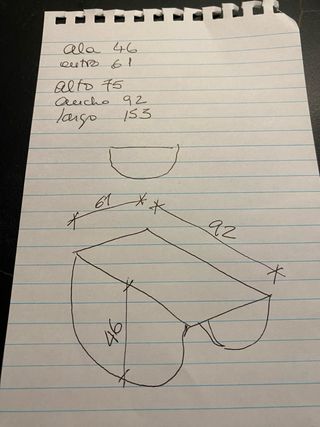 ala 46
centro 61
alto 75
ancho 92
largo 153
61
92
46